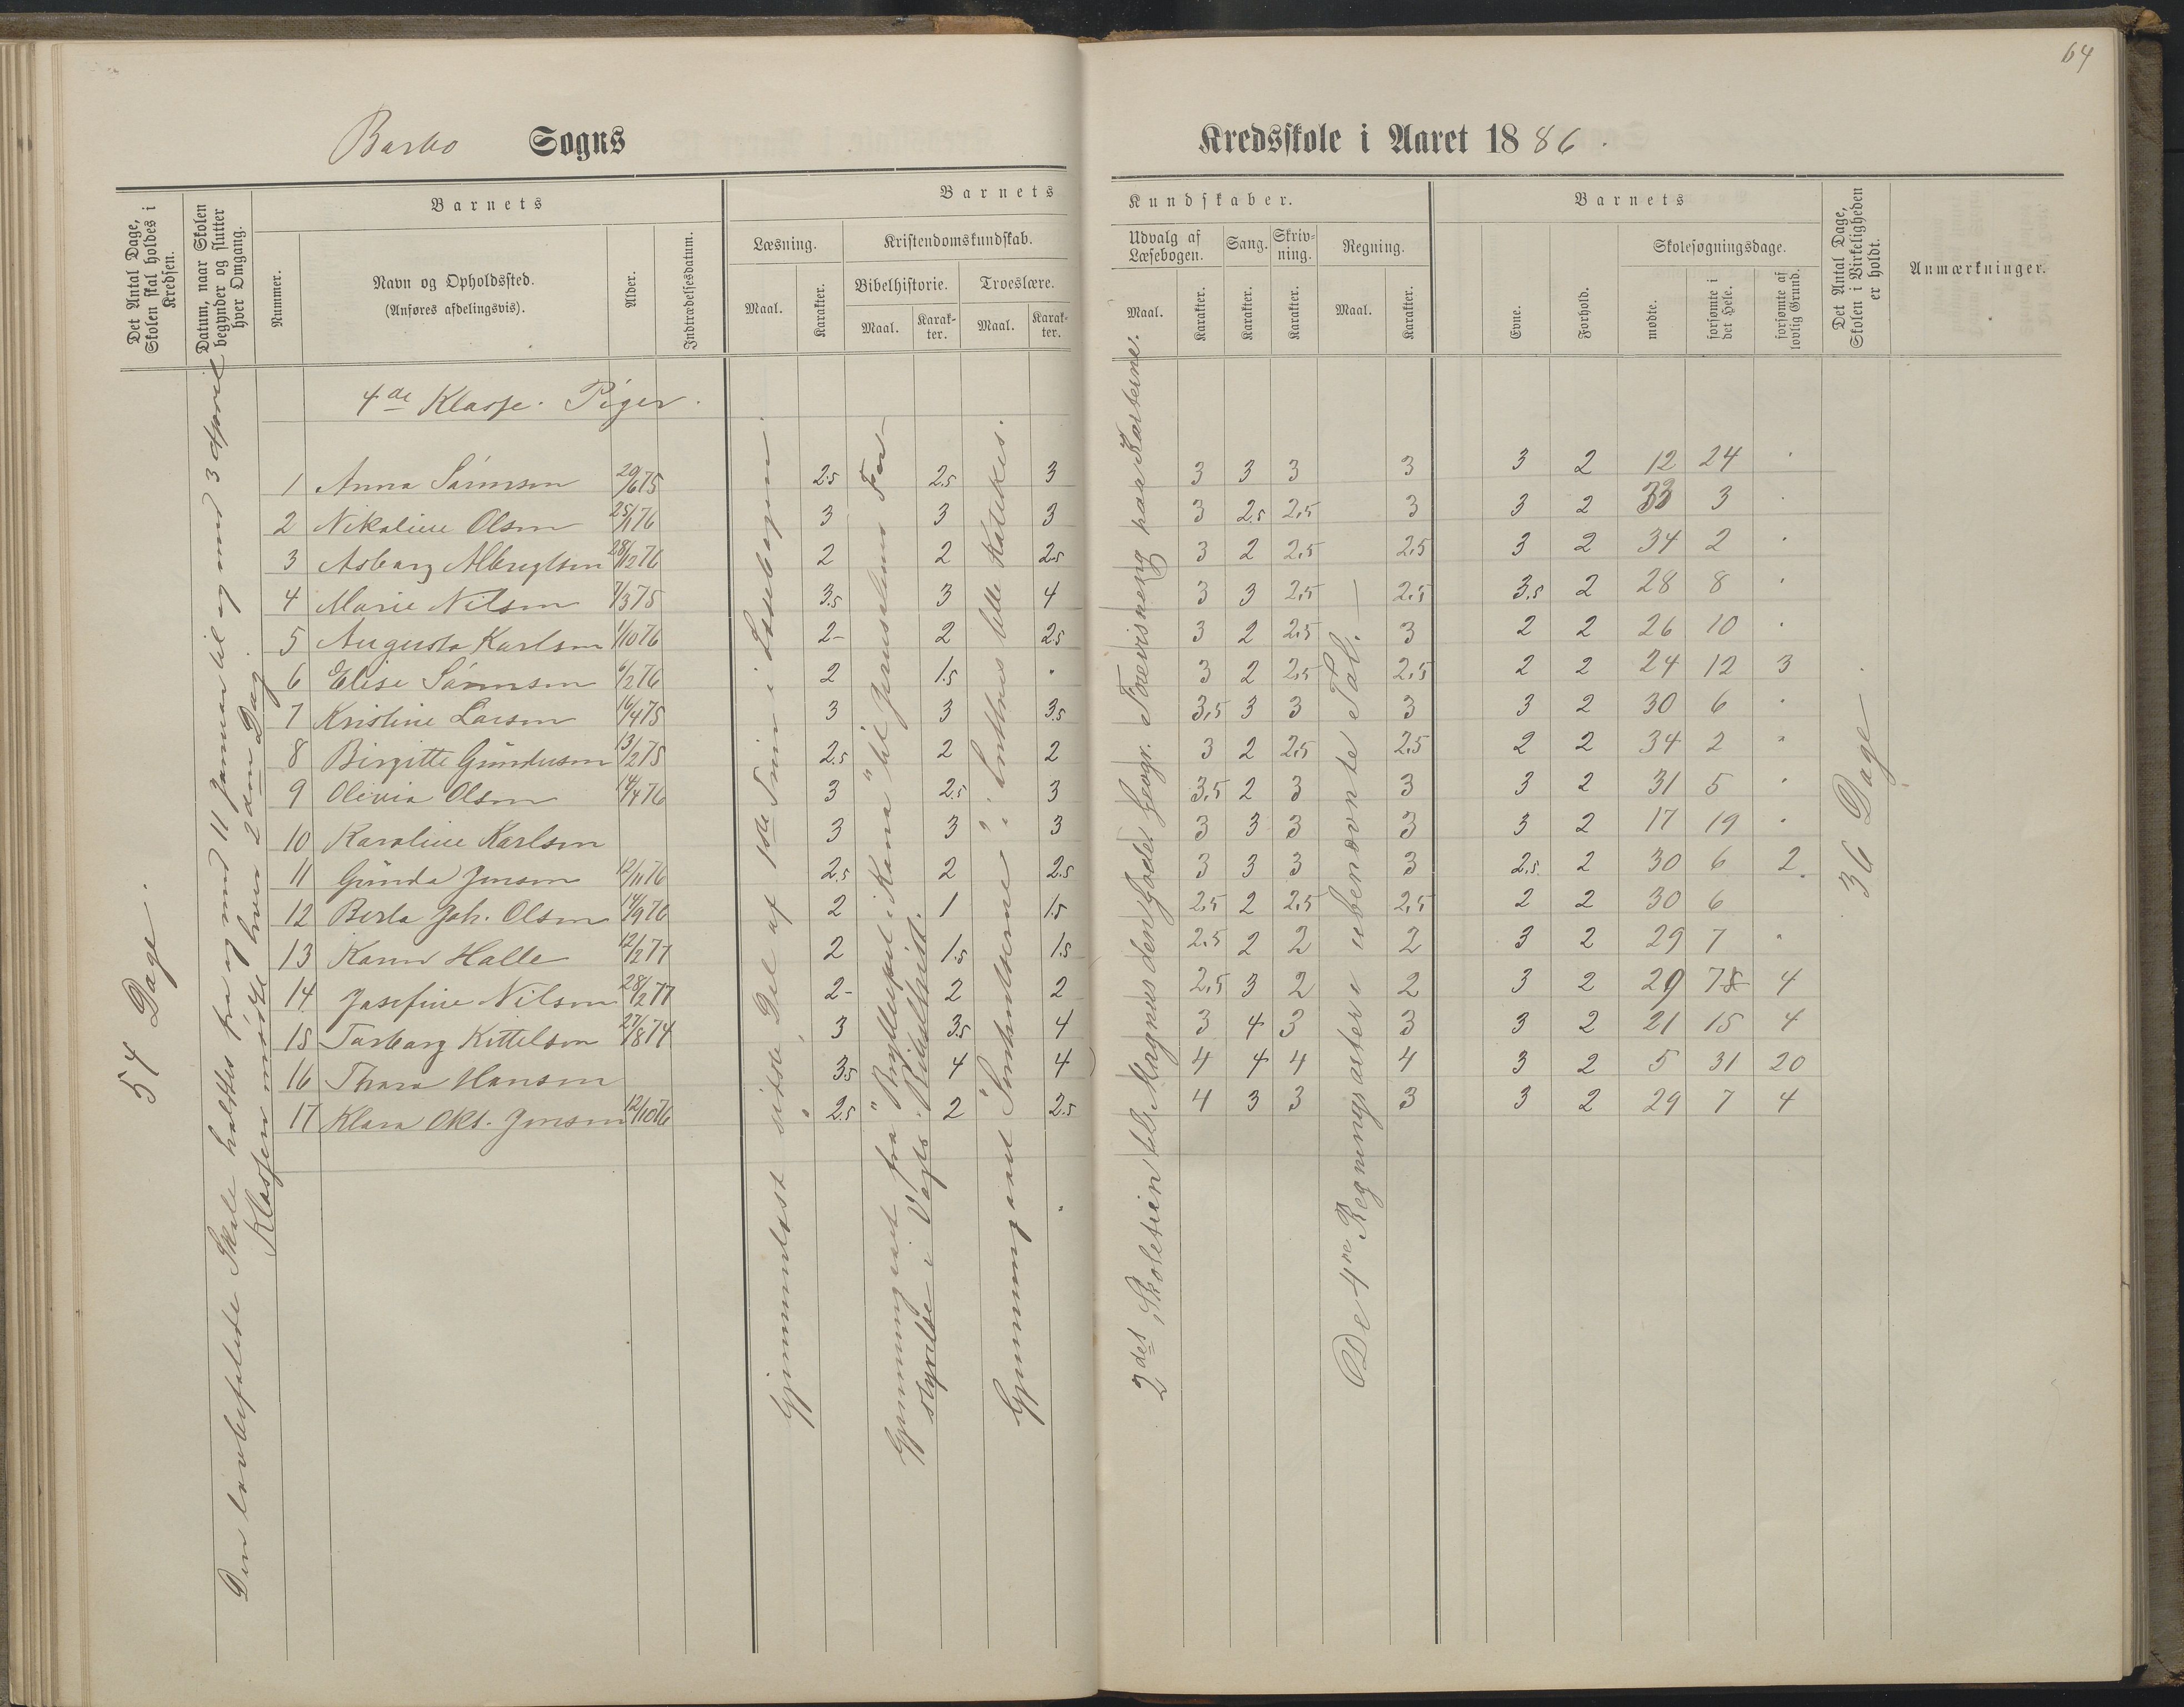 64
Barbo Sogns Kredsskole i Aaret 1886.
Det Antal Dage, Skolen skal holdes i Kredsen.
Datum, naar Skolen begynder og slutter hver Omgang.
Barnets
Nummer.
Navn og Opholdssted.
(Anføres afdelingsvis).
Alder.
Indtrædelsesdatum.
Barnets Kundskaber.
Læsning.
Maal. Karakter.
Kristendomskundskab.
Bibelhistorie. Troeslære.
Maal. Karakter. Maal. Karakter.
Udvalg af Læsebogen.
Maal. Karakter.
Sang.
Karakter.
Skrivning.
Karakter.
Regning.
Maal. Karakter.
Barnets
Evne. Forhold.
Skolesøgningsdage.
mødte. forsømte i det Hele. forsømte af lovlig Grund.
Det Antal Dage, Skolen i Virkeligheden er holdt.
Anmærkninger.
4de Klasse. Piger.
1 Anna Sørensen 20/6 75 2.5 2.5 3 3 3 3 3 3 2 12 24 "
2 Nikoline Olsen 25/1 76 3 3 3 3 2.5 2,5 3 3 2 33 3 "
3 Asborg Albregtsen 28/12 76 2 2 2.5 3 2 2,5 2,5 3 2 34 2 "
4 Marie Nilsen 7/3 75 3.5 3 4 3 3 2,5 2,5 3.5 2 28 8 "
5 Augusta Karlsen 1/10 76 2- 2 2.5 3 2 2,5 3 2 2 26 10 "
6 Elise Sørensen 6/2 76 2 1.5 " 3 2 2,5 2,5 2 2 24 12 3
7 Kristine Larsen 16/4 75 3 3 3.5 3,5 3 3 3 3 2 30 6 "
8 Birgitte Gundersen 13/2 75 2.5 2 2 3 2 2,5 2,5 2 2 34 2 "
9 Olivia Olsen 14/4 76 3 2.5 3 3,5 2 3 3 3 2 31 5 "
10 Karoline Karlsen 3 3 3 3 3 3 3 3 2 17 19 "
11 Gunda Jensen 12/11 76 2.5 2 2.5 3 3 3 3 2.5 2 30 6 2
12 Berta Joh. Olsen 14/9 76 2 1 1.5 2,5 2 2,5 2,5 2 2 30 6
13 Karen Halle 12/2 77 2 1.5 1.5 2,5 2 2 2 3 2 29 7 "
14 Josefine Nilsen 28/2 77 2- 2 2 2,5 3 2 2 3 2 29 78 4
15 Torborg Kittelsen 27/8 74 3 3.5 4 3 4 3 3 3 2 21 15 4
16 Thora Hansen 3.5 4 4 4 4 4 4 3 2 5 31 20
17 Klara Okt. Jensen 12/10 76 2.5 2 2.5 4 3 3 3 3 2 29 7 4
54 Dage.
Den lovbefalede Skole holdtes fra og med 11 Januar til og med 3 April
Klassen mødte hver 2den Dag.
Gjennemlæst sidste Del af 1ste Trin i Læsebogen.
Gjennemgaaet fra "Bryllupet i Kana" til Jerusalems For-
styrelse i Vogts Bibelhist.
Gjennemgaaet Sønhendelserne i Luthers lille Katekis.
2det Skoletrin til Magnus den Gode. Geogr. Forevisning paa Karterne.
De 4re Regningsarter i ubenævnte Tal. —
36 Dage